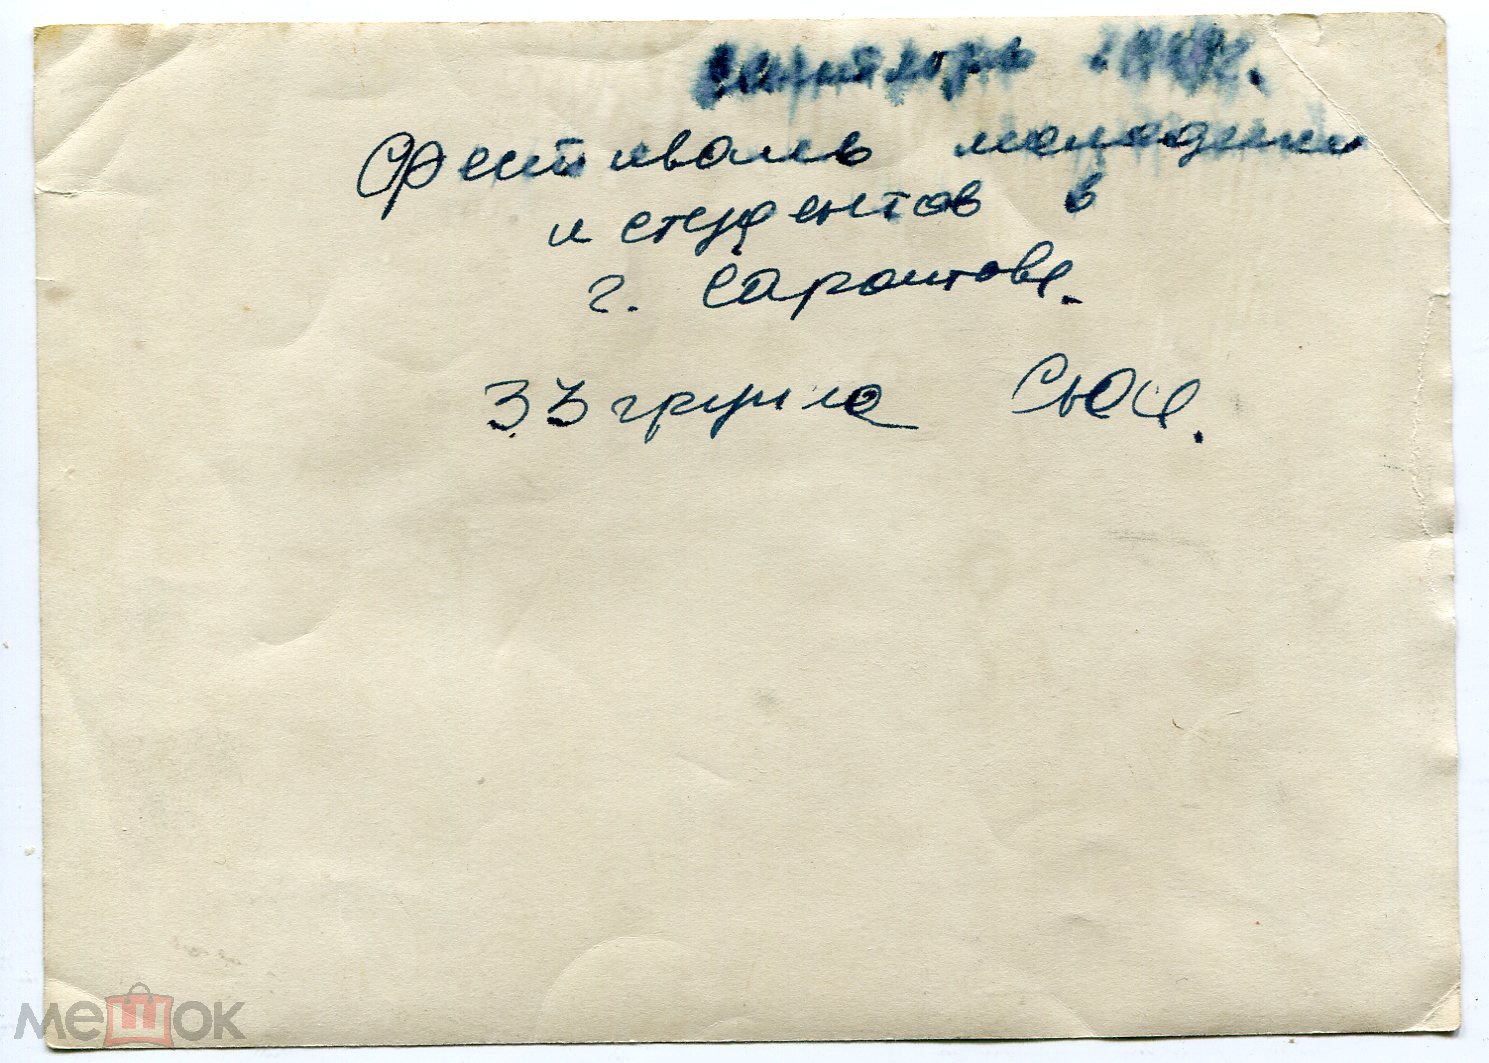 Фестиваль молодежи
и студентов в
г. Саратове.
33 группа СЮИ.
мешок